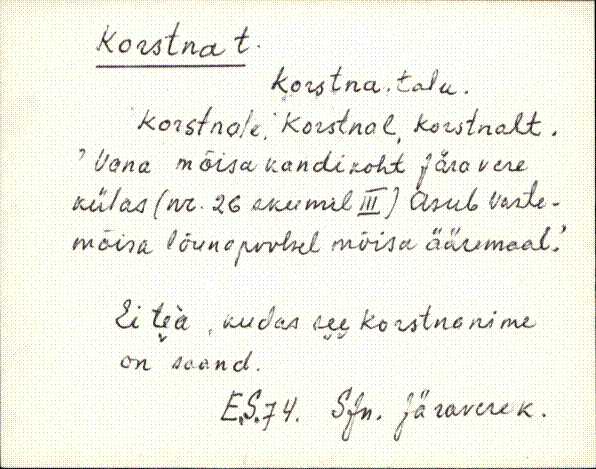 Korstna t.
korstna. talu.
korstnale, korstnal, korstnalt.
'Vana mõisa kandikoht Järavere
külas (nr. 26 skeemil III) Asub Vaste-
mõisa lõunapoolsel mõisa ääremaal.'
Ei tea, kudas see korstnanime
on saand.
E.S.74. Sjn. Järavere k.